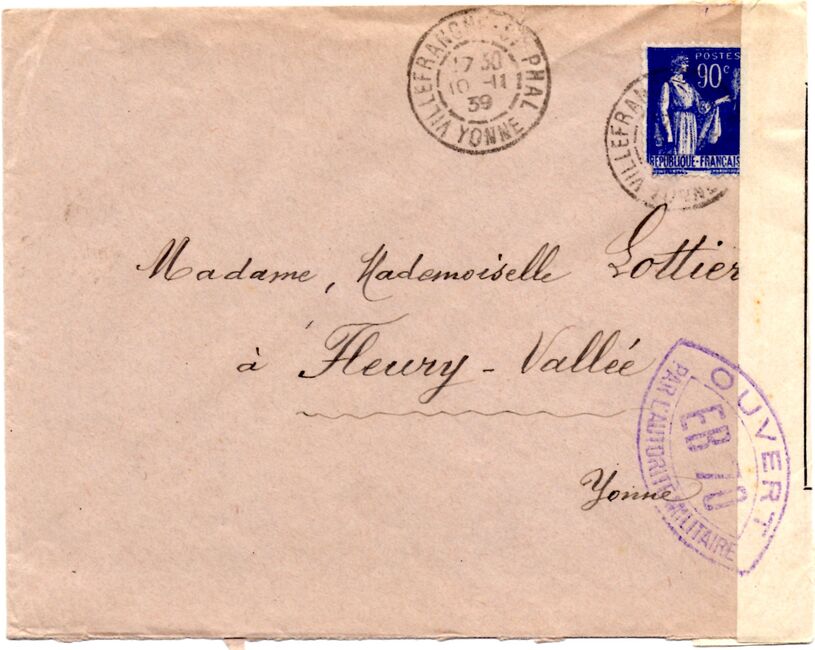 VILLEFRANCHE-ST PHAL
17 30
10 -11
39
YONNE
POSTES
90c
REPUBLIQUE-FRANCAIS
VILLEFRAN
YONNE
Madame, Mademoiselle Lottier
à Fleury-Vallée
Yonne
OUVERT
PAR L'AUTORITE MILITAIRE
EB 70